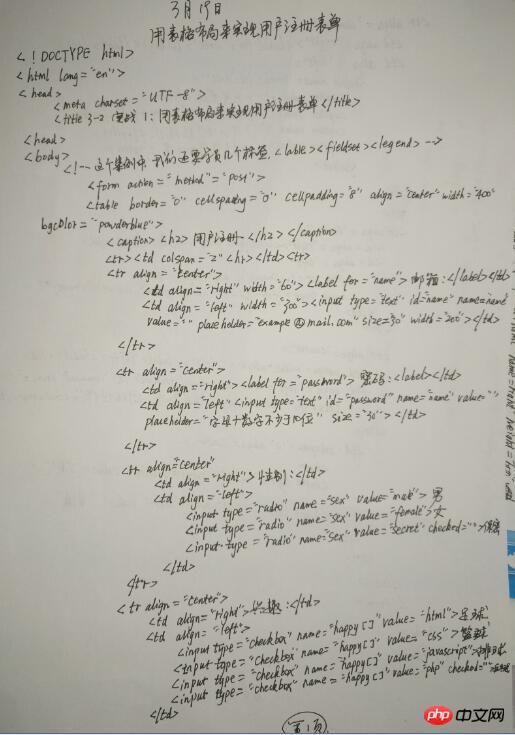 3月19日
用表格布局来实现用户注册表单
<!DOCTYPE html>
<html lang="en">
<head>
<meta charset="UTF-8">
<title 3-2 实战1:用表格布局来实现用户注册表单</title>
<head>
<body>
<!-- 这个案例中,我们还要学习几个标签,<lable><fieldset><legend> -->
<form action="" method"="post">
<table border="0" cellspading="0" cellpadding="8" align="center" width="400"
bgcolor="powderblue">
<caption><h2>用户注册</h2></caption>
<tr><td colspan="2" <hr></td><tr>
<tr align="center">
<td align="right" width="60"><label for="name">邮箱:</label></td>
<td align="left" width="300"><input type="text" id=name" name=name"
value="" place holder="example@mail.com" size=30" width="200"></td>
</tr>
<tr align="center">
<td align="right><label for="password">密码:<label></td>
<td align="left" <input type="text" id="password" name="name" value=""
placeholder="字母+数字不少于10位" size="30"></td>
</tr>
<tr align="center"
<td align="right">性别:</td>
<td align="left">
<input type="radio" name="sex" value="male">男
<input type="radio" name="sex" value="female">女
<input type="radio" name="sex" value="secret" checked="">保密
</td>
</tr>
<tr align="center">
<td align="right">兴趣:</td>
<td align="left">
<input type="checkbox" name="happy[]" value="html">足球
<input type="checkbox" name="happy[]" value="css">篮球
<input type="checkbox" name="happy[]" value="javascript">排球
<input type="checkbox" name="happy[]" value="php" checked=""
</td>
第1页
php 中文网